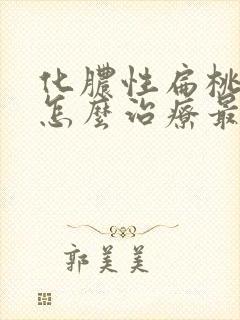 化膿性扁桃
怎麼治療最
郭美美